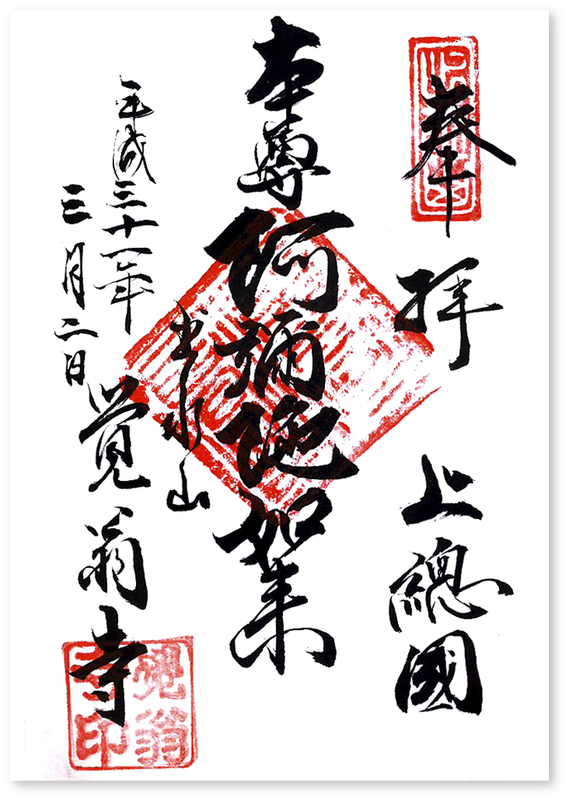 奉拝　上總國
本尊阿彌陀如来
平成三十一年
三月二日
山
覚翁寺
覺翁寺印